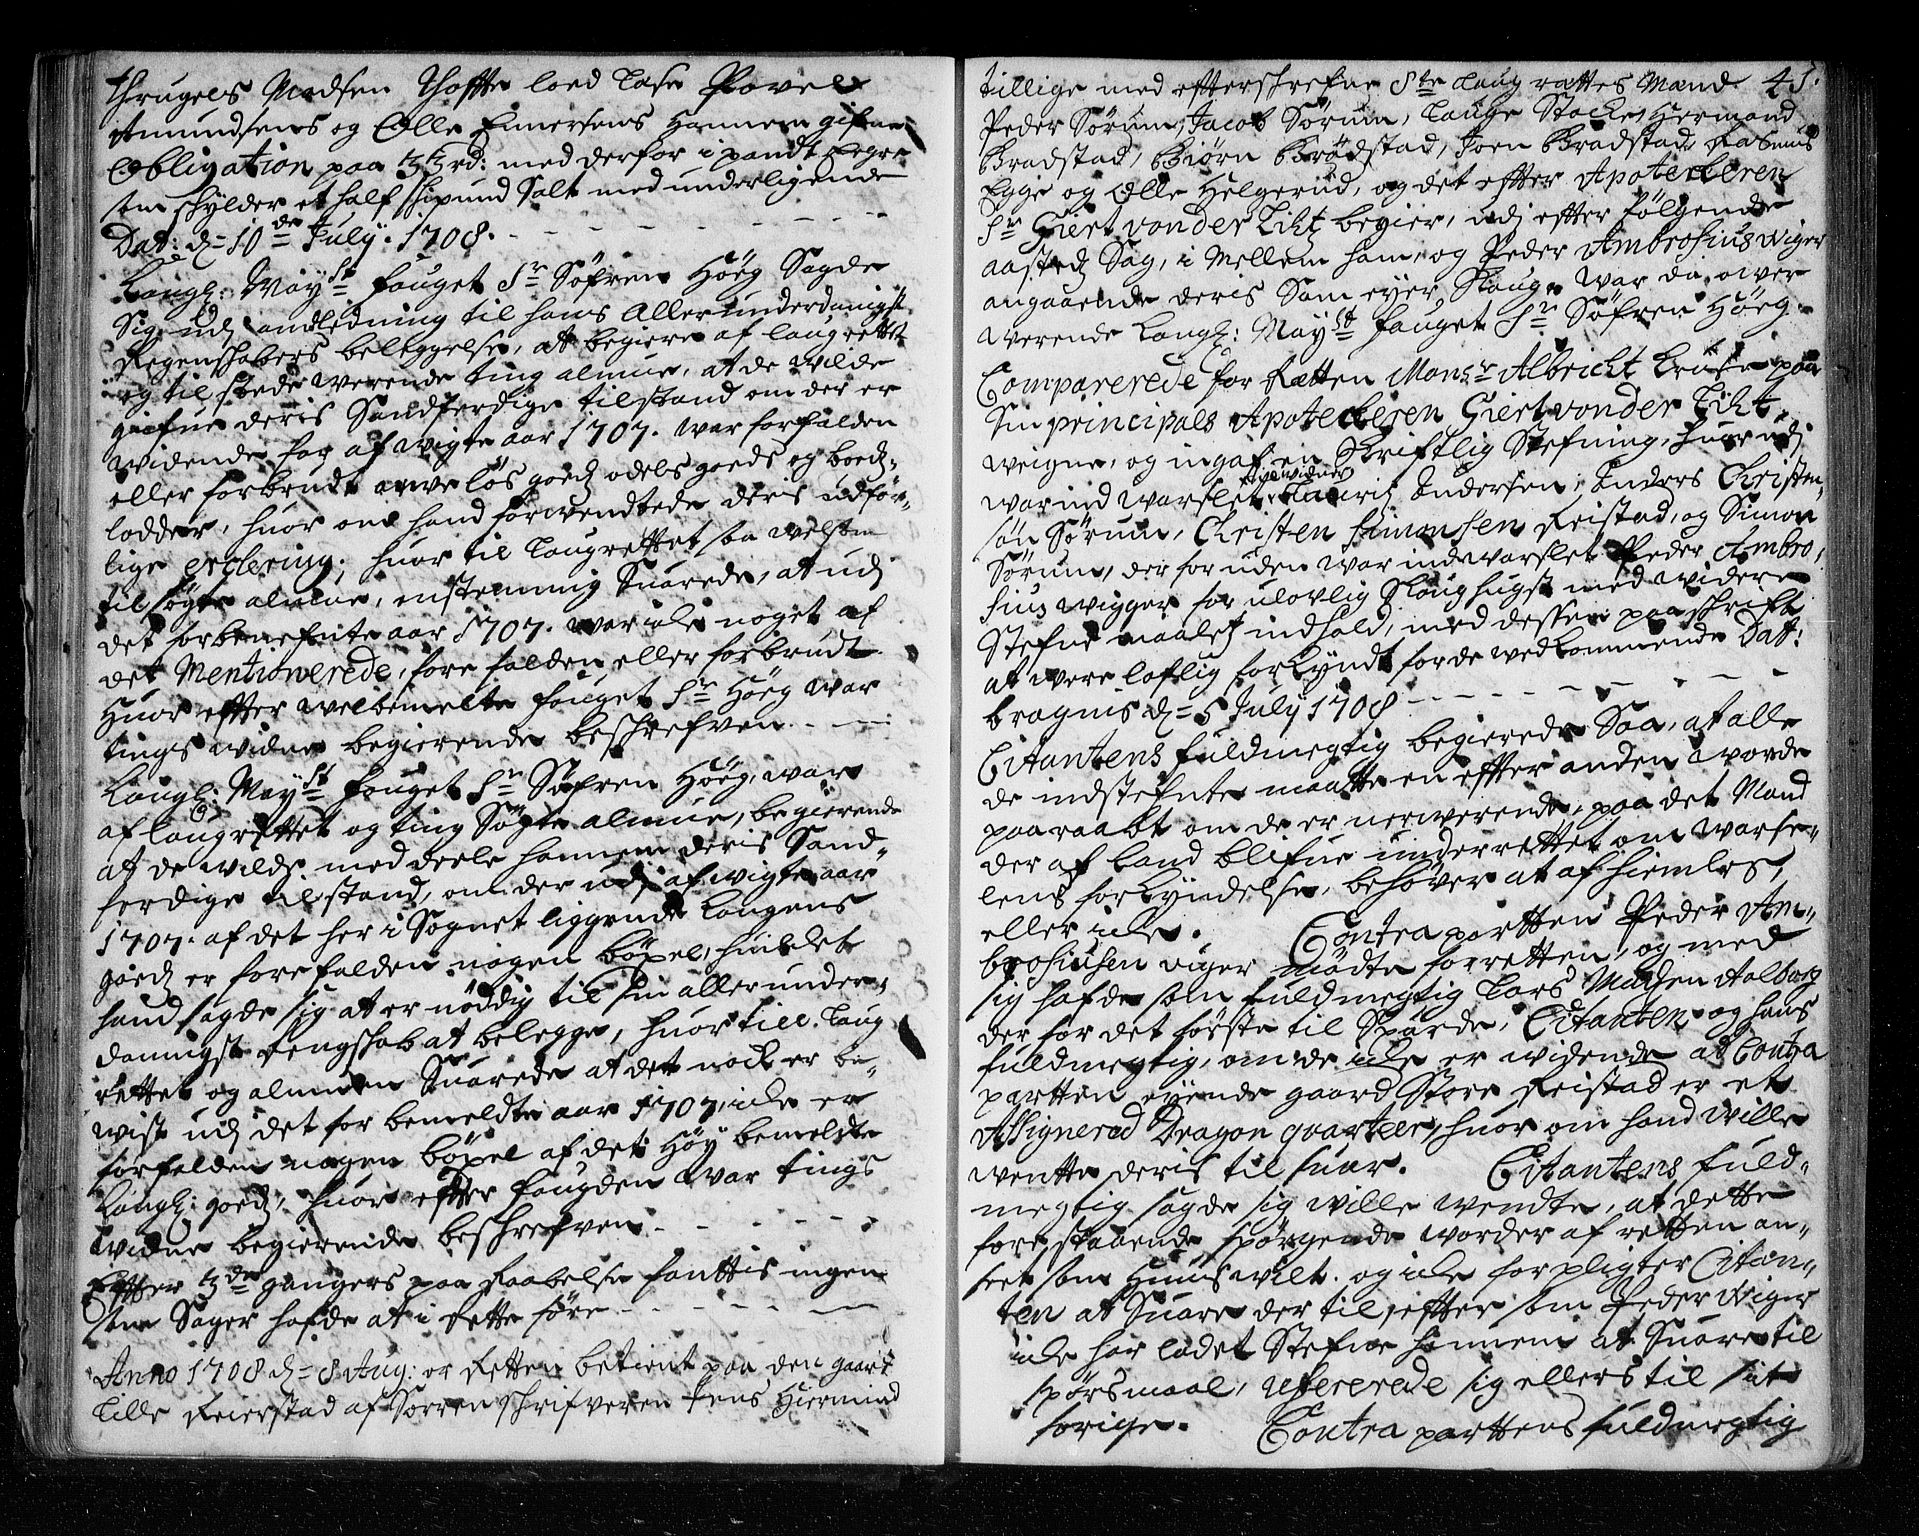 Thrugels Madsen Thoffte loed læse Povel
Amundsens og Olle Einersens Hannem gifne
Obligation paa 33 rd: med derfor i pandt
som schylder et half schipund Salt med underligende
Dat: d= 10de July. 1708. - - - - - - -
Kongl: Mayst fouget Sr Søfren Höeg Sagde
Sig udj andledning til hans Allerunderdanigst
Regenschabers beleggelse, at begiere af laugrettet
og til stede werende ting almue, at de wilde
giefue deris Sandferdige tilstand om der er
widende for afwigte aar 1707. war forfalden
eller forbrudt arwe løs goedz odels goeds og boedz-
lodder, huor om hand forwendtede deris udför-
lige erclering, huor til laugrettet saa welsom
til søgte almue, enstemmig Suarede, at udj
det forbenefnte aar 1707. war iche noget af
det Mentionerede, fore falden eller forbrudt
Huor effter welbemelte fouget Sr Höeg war
tings widne begierende beschrefven. - - -
Kongl: Mayst fouget Sr Søfren Höeg, war
af laugrettet og ting Søgte almue, begierende
at de wilde med deele hannem deris Sand-
ferdige tilstand, om der udj afwigte aar
1707. af det her i Sognet liggende Kongens
goedz er fore falden nogen böxel, huilcket
hand sagde sig at er nöddig til sin allerunder-
danigst Rengschab at belegge, huor till laug
rettet og almuen Suarede at det nock er be-
wist udj det for bemeldte aar 1707, iche er
forfalden nogen böxel af det Höy bemelte
Kongl: goedz, huor effter fougden war tings
widne begierende beschrefven. - - - - -
Effter 3de gangers paa Raabelse fanttis ingen
som Sager hafde at i Rette före - - - - -
Anno 1708 d= 8 Aug: er Retten betient paa den gaard
Lille Reierstad af Sorrenschrifveren Jens Hiermind
43.
tillige med efterschrefne 8te laug rettes Mænd
Peder Sørum, Jacob Sørum, Lauge Stocke, Hermand
Bradstad, Biörn Brödstad, Joen Bradstad, Rasmus
Egge og Olle Helgerud, og det effter Apoteckeren
Sr Giert von der Licht begier, udj efter følgende
aastedz Sag, i Mellem ham og Peder Ambrosius Wiger
angaaende deris Sam eyer Skoug. War da over
werende Kongl: Mayst fouget Sr Söfren Höeg.
Comparerede for Retten Monsr Albricht Kruse paa
Sin principals Apoteckeren Giert von der Licht
weigne, og ingaf en Skriftlig Stefning, huor udj
war ind warslet widner Lauridz Andersen, Anders Christen-
sön Sørum, Christen Simonsen Reistad, og Simon
Sørum, der for uden war indwarslet Peder Ambro-
sius Wigger for ulovlig Skoug hugst med widere
Stefne maaletz indhold, med dessen paaschrift
at were loflig forkyndt for de wedkommende Datt:
bragnis d= 5 July 1708 - - - - - - -
Citantens fuldmegtig begierede Saa, at alle
de indstefnte maatte en effter anden worde
paaraabt om de er nerwerende, paa det Mand
der af kand blifue underrettet om warse-
lens forkyndelse, behöver at afhiemles,
eller iche. Contra partten Peder Am-
brosiusen Wiger mødte for retten, og med
sig hafde som fuldmegtig Lars Madsen Aalborg
der for det förste til Spurde Citanten og hans
fuldmegtig, om de iche er widende at Contra
partten eyende gaard Store Reistad er et
Assignered Dragon quarteer, huor om hand wille
wentte deris til suar. Citantens fuld-
megtig sagde sig wille wendte, at dette
fore staaende spörgende worder af retten an-
seet som Hums wilt. og iche forpligter Citan-
ten at Suare der til, effter som Peder Wiger
iche har ladet Stefne hannem at Suare til
spörsmaal, refererede sig ellers til sit
forige. Contra parttens fuldmegtig